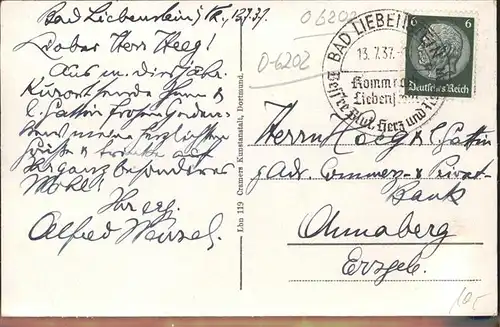 Bad Liebenstein, Th., 12.7.37.
Lieber Herr Heeg!
Aus m. diesjähr.
Kurortsende Ihnen &
l. Gattin frohen Geden-
kens meine herzlichsten
Grüße & trinke auf
Ihr ganz besonderes
Wohl!
Ihr erg.
Alfred Wenzel.
Lbn 119 Cramers Kunstanstalt, Dortmund.
0 6202
0-6202
BAD LIEBENSTEIN
13.7.37.
Komm
Liebenst
Herz und
6 6
Deutsches Reich
Herrn Heeg & Gattin
Adr. Commerz- & Privat-
Bank
Annaberg
Erzgeb.
10,-